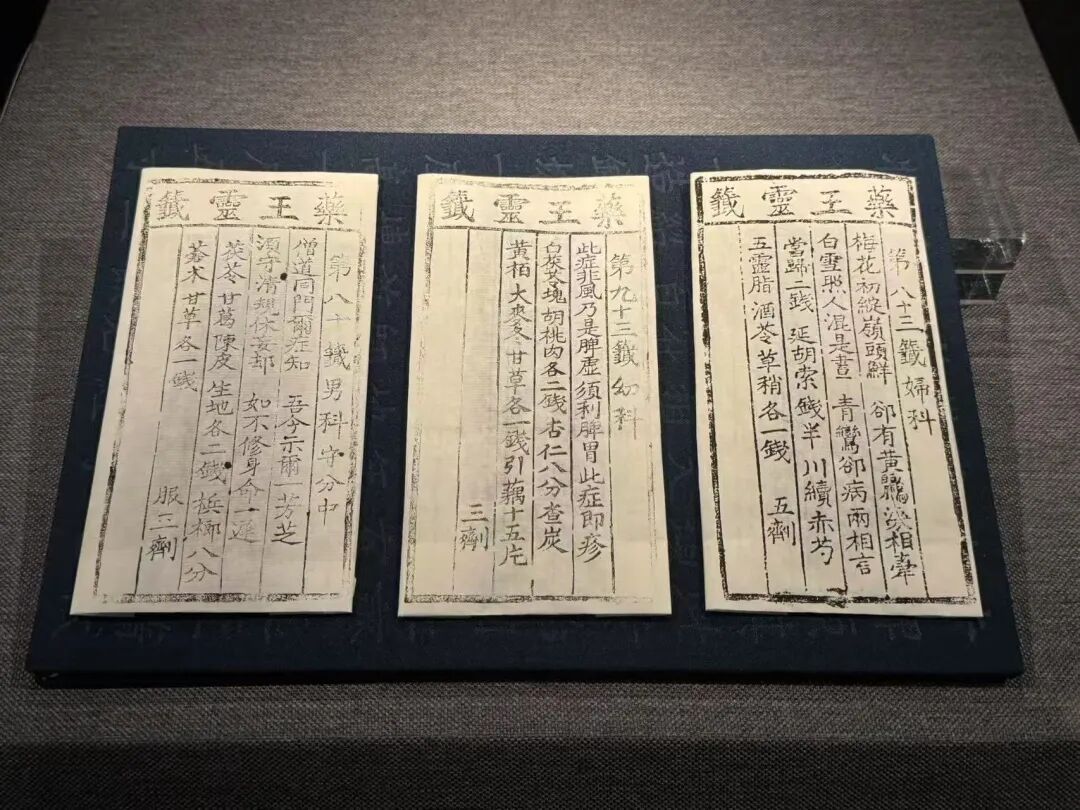 藥王靈籤
第八十三籤婦科
梅花初綻嶺頭鮮 卻有黃鸝相牽
白雪照人混是晝 青鸞卻病兩相言
當歸二錢 延胡索錢半 川續赤芍
五靈脂 酒苓草稍各一錢 五劑
藥王靈籤
第九十三籤幼科
此症非風乃是脾虛須利脾胃此症即疹
白茯苓塊胡桃肉各二錢杏仁八分查炭
黃栢大麥冬甘草各一錢引藕十五片
三劑
藥王靈籤
第八十籤男科守分中
僧道同門爾在知 吾今示爾一芳芝
須守清規休妄却 如不修身命一遲
茯苓甘葛陳皮生地各二錢檳榔八分
木甘草各一錢 服二劑